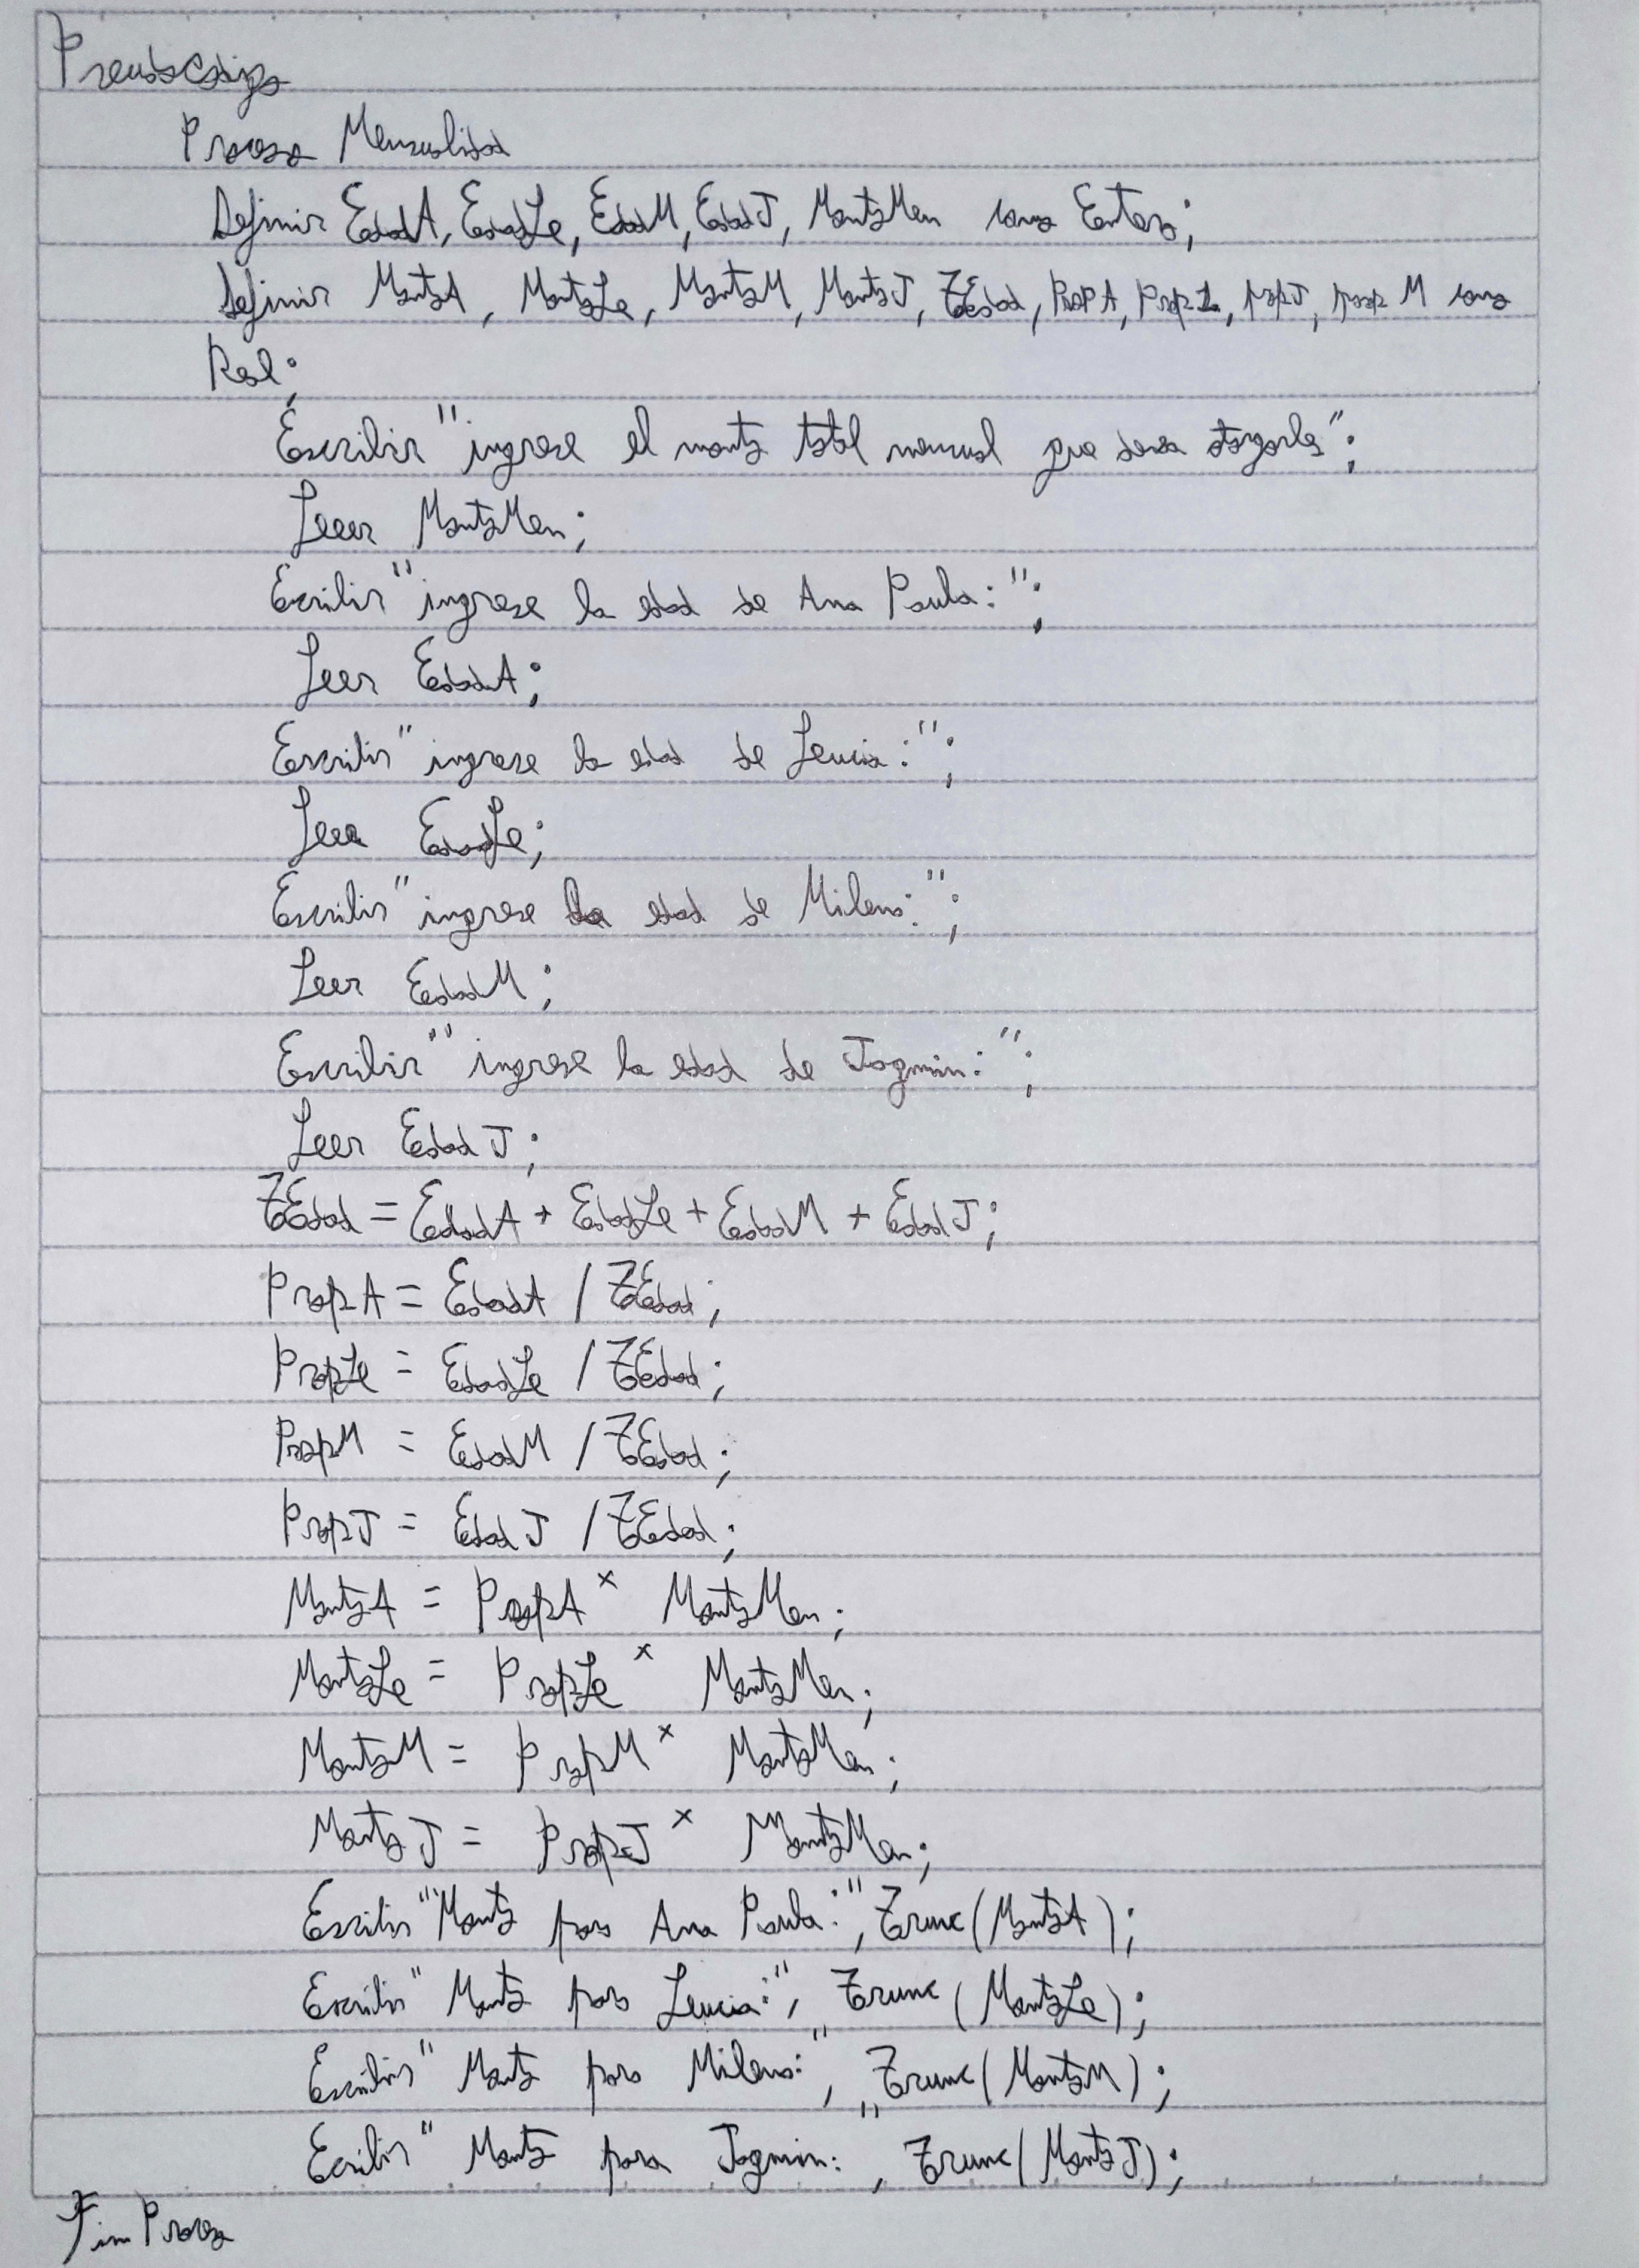 Pseudocodigo
Proceso Mensualidad
Definir EdadA, EdadLe, EdadM, EdadJ, MontoMen como Entero;
Definir MontoA, MontoLe, MontoM, MontoJ, TEdad, PropA, PropL, propJ, propM como
Real;
Escribir "ingrese el monto total mensual que desea otorgarle";
Leer MontoMen;
Escribir "ingrese la edad de Ana Paula:";
Leer EdadA;
Escribir "ingrese la edad de Leucia:";
Leer EdadLe;
Escribir "ingrese la edad de Milens:";
Leer EdadM;
Escribir "ingrese la edad de Jogmin:";
Leer EdadJ;
TEdad = EdadA + EdadLe + EdadM + EdadJ;
PropA = EdadA / TEdad;
PropLe = EdadLe / TEdad;
PropM = EdadM / TEdad;
PropJ = EdadJ / TEdad;
MontoA = PropA * MontoMen;
MontoLe = PropLe * MontoMen;
MontoM = PropM * MontoMen;
MontoJ = PropJ * MontoMen;
Escribir "Monto para Ana Paula:", Trunc(MontoA);
Escribir "Monto para Leucia:", Trunc(MontoLe);
Escribir "Monto para Milens:", Trunc(MontoM);
Escribir "Monto para Jogmin:", Trunc(MontoJ);
Fin Proceso